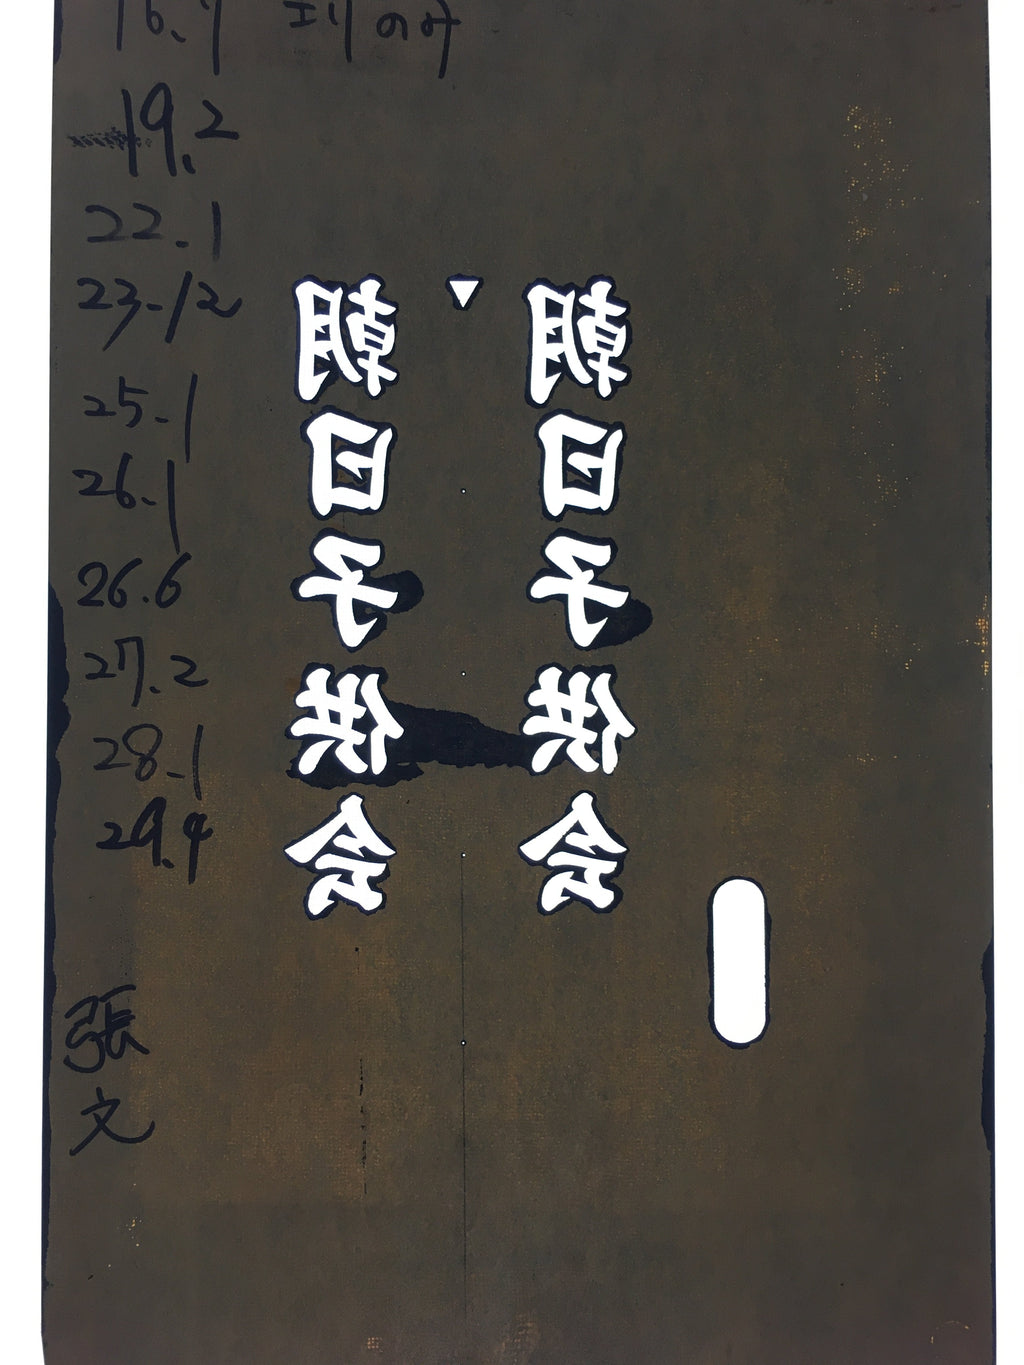 16.7 エリのみ
19.2
22.1
23-12
25-1
26.1
26.6
27.2
28-1
29.4
張
文
朝日子供会
朝日子供会